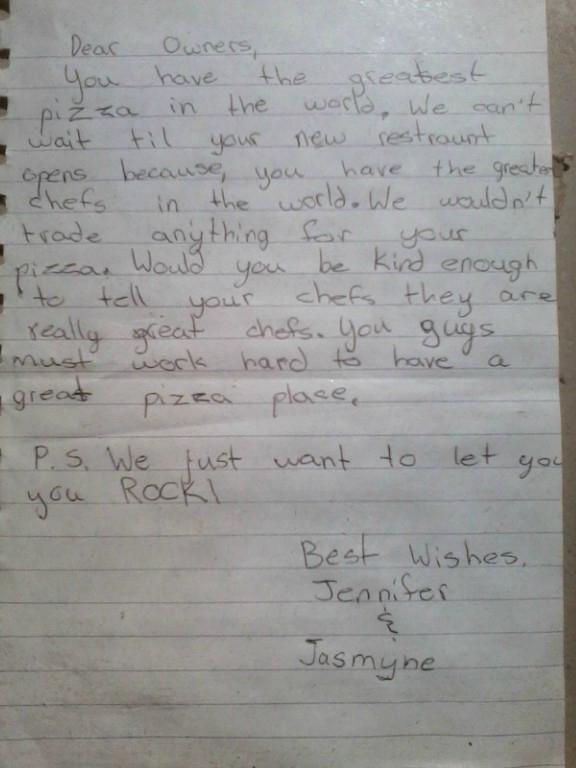 Dear Owners,
You have the greatest
pizza in the world. We can't
wait til your new restraunt
opens because, you have the greatest
chefs in the world. We wouldn't
trade anything for your
pizza. Would you be kind enough
to tell your chefs they are
really great chefs. You guys
must work hard to have a
great pizza place.
P.S. We just want to let you
you ROCK!
Best Wishes,
Jennifer
&
Jasmyne